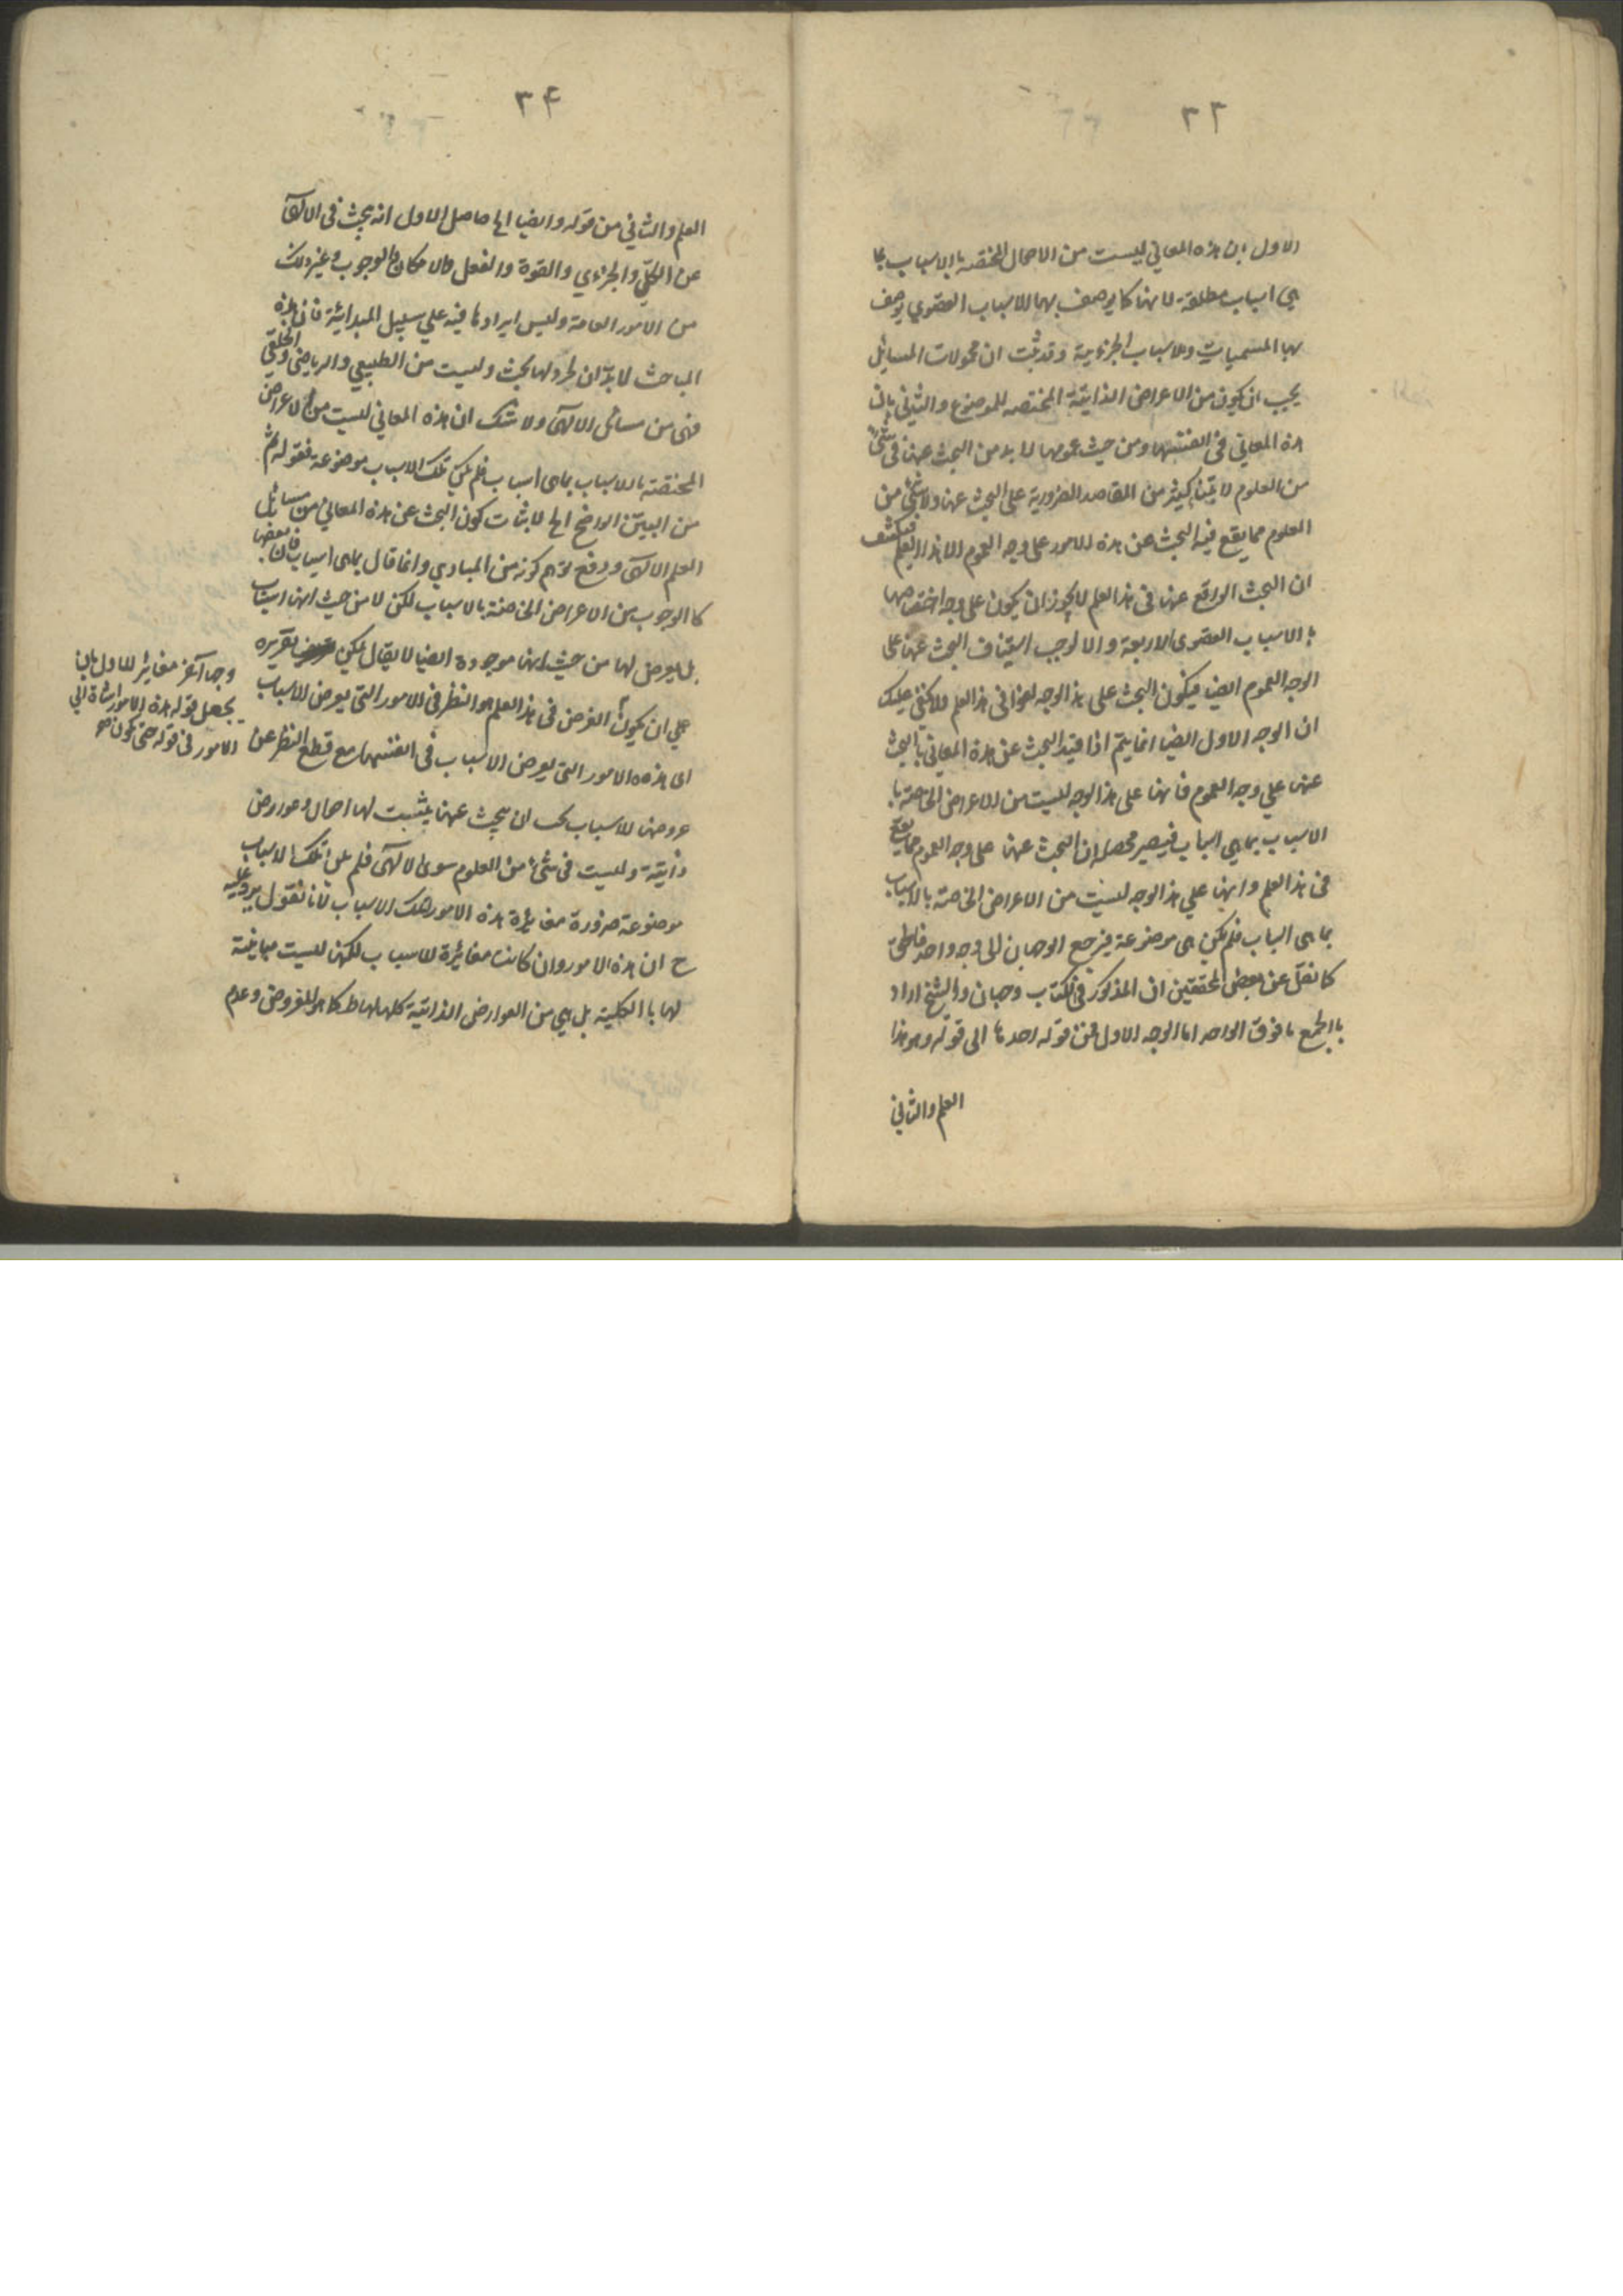 ٣٣
الاول ان هذه المعاني ليست من الاحوال المختصه بالاسباب بما
هي اسباب مطلقة لانها كما يوصف بها الاسباب القصوي يوصف
بها المسببات والاسباب الجزئية وقد ثبت ان محمولات المسائل
يجب ان يكون من الاعراض الذاتية المختصه للموضوع والثاني بان
هذه المعاني في انفسها ومن حيث عمومها لا بد من البحث عنها في شئ
من العلوم لابتناء كثير من المقاصد الضرورية على البحث عنها ولا شئ من
العلوم مما يقع فيه البحث عن هذه الامور على وجه العموم الا هذا العلم فينكشف
ان البحث الواقع عنها في هذا العلم لا يجوز ان يكون على وجه اختصاصها
بالاسباب القصوى الاربعة والا لوجب استيناف البحث عنها على
الوجه العموم ايضا فيكون البحث على هذا الوجه لغوا في هذا العلم ولا يخفى عليك
ان الوجه الاول ايضا انما يتم اذا قيد البحث عن هذه المعاني بالبحث
عنها علي وجه العموم فانها على هذا الوجه ليست من الاعراض الخاصة با
الاسباب بما هي اسباب فيصير محصله ان البحث عنها على وجه العموم مما يقع
في هذا العلم وانها علي هذا الوجه ليست من الاعراض الخاصة بالاسباب
بما هى اسباب فلم يكن هى موضوعة فيرجع الوجهان الى وجه واحد
كما نقل عن بعض المحققين ان المذكور في الكتاب وجهان والشيخ اراد
بالجمع ما فوق الواحد اما الوجه الاول فمن قوله احدها الى قوله وهو هذا
العلم والثاني
٣۴
العلم والثاني من قوله وايضا الخ حاصل الاول انه يبحث في الالهى
عن الكلي والجزءي والقوة والفعل والامكان والوجوب وغير ذلك
من الامور العامة وليس ايرادها فيه علي سبيل المبدائية فان هذه
المباحث لا بد ان لها بحث وليست من الطبيعي والرياضى والخلقي
فهى من مسائل الالهى ولا شك ان هذه المعاني ليست من الاعراض
المختصة بالاسباب بما هى اسباب فلم يكن تلك الاسباب موضوعة فقوله ثم
من البين الواضح الخ لاثبات كون البحث عن هذه المعاني من مسائل
العلم الالهى ودفع توهم كونه من المبادي وانما قال بما هى اسباب فان بعضها
كالوجوب من الاعراض الخاصة بالاسباب لكن لا من حيث انها اسباب
بل يعرض لها من حيث انها موجودة ايضا لا يقال يمكن تقريره
علي ان يكون الغرض في هذا العلم هو النظر في الامور التي يعرض الاسباب
اى هذه الامور التي يعرض الاسباب في انفسها مع قطع النظر عن
عروضها للاسباب ان يبحث عنها يثبت لها احوال وعوارض
ذاتية وليست في شئ من العلوم سوى الالهى فلم يكن تلك الاسباب
موضوعة ضرورة مغايرة هذه الامور تلك الاسباب لانا نقول يرد عليه
ح ان هذه الامور وان كانت مغائرة للاسباب لكنها ليست مباينة
لها بالكلية بل هي من العوارض الذاتية كلها لها كما هو المفروض وعدم
وجها آخر مغايرا للاول بان
يجعل قوله هذه الامور اشارة الي
الامور في قوله حتى يكون هو